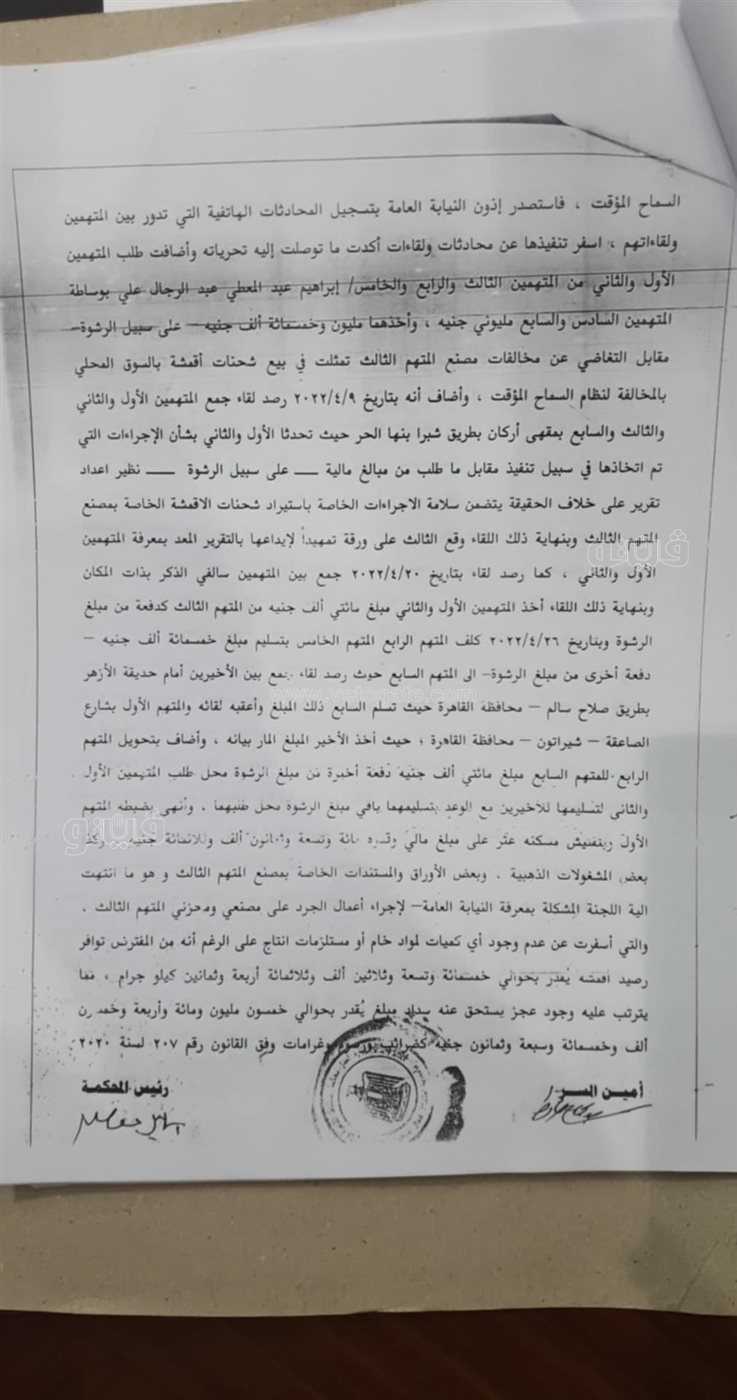 السماح المؤقت ، فاستصدر إذون النيابة العامة بتسجيل المحادثات الهاتفية التي تدور بين المتهمين
ولقاءاتهم ، اسفر تنفيذها عن محادثات ولقاءات أكدت ما توصلت إليه تحرياته وأضافت طلب المتهمين
الأول والثاني من المتهمين الثالث والرابع والخامس/ إبراهيم عبد المعطي عبد الرجال علي بوساطة
المتهمين السادس والسابع مليوني جنيه ، وأخذهما مليون وخمسمائة ألف جنيه – على سبيل الرشوة–
مقابل التغاضي عن مخالفات مصنع المتهم الثالث تمثلت في بيع شحنات أقمشة بالسوق المحلي
بالمخالفة لنظام السماح المؤقت ، وأضاف أنه بتاريخ ٢٠٢٢/٤/٩ رصد لقاء جمع المتهمين الأول والثاني
والثالث والسابع بمقهى أركان بطريق شبرا بنها الحر حيث تحدثا الأول والثاني بشأن الإجراءات التي
تم اتخاذها في سبيل تنفيذ مقابل ما طلب من مبالغ مالية ــــ على سبيل الرشوة ــــ نظير اعداد
تقرير على خلاف الحقيقة يتضمن سلامة الاجراءات الخاصة باستيراد شحنات الاقمشة الخاصة بمصنع
المتهم الثالث وبنهاية ذلك اللقاء وقع الثالث على ورقة تمهيداً لإيداعها بالتقرير المعد بمعرفة المتهمين
الأول والثاني ، كما رصد لقاء بتاريخ ٢٠٢٢/٤/٢٠ جمع بين المتهمين سالفي الذكر بذات المكان
وبنهاية ذلك اللقاء أخذ المتهمين الأول والثاني مبلغ مائتي ألف جنيه من المتهم الثالث كدفعة من مبلغ
الرشوة وبتاريخ ٢٠٢٢/٤/٢٦ كلف المتهم الرابع المتهم الخامس بتسليم مبلغ خمسمائة ألف جنيه –
دفعة أخرى من مبلغ الرشوة– الى المتهم السابع حيث رصد لقاء جمع بين الأخيرين أمام حديقة الأزهر
بطريق صلاح سالم – محافظة القاهرة حيث تسلم السابع ذلك المبلغ وأعقبه لقائه والمتهم الأول بشارع
الصاعقة – شيراتون – محافظة القاهرة ؛ حيث أخذ الأخير المبلغ المار بيانه ، وأضاف بتحويل المتهم
الرابع للمتهم السابع مبلغ مائتي ألف جنيه دفعة أخيرة من مبلغ الرشوة محل طلب المتهمين الأول
والثانى لتسليمها للأخيرين مع الوعد بتسليمهما باقي مبلغ الرشوة محل طلبهما . وأنهى بضبطه المتهم
الأول وبتفتيش مسكنه عثر على مبلغ مالي وقدره مائة وتسعة وثمانون ألف وثلاثمائة جنيه وكذا
بعض المشغولات الذهبية . وبعض الأوراق والمستندات الخاصة بمصنع المتهم الثالث و هو ما انتهت
الية اللجنة المشكلة بمعرفة النيابة العامة– لإجراء أعمال الجرد على مصنعي ومخزني المتهم الثالث .
والتي أسفرت عن عدم وجود أي كميات لمواد خام أو مستلزمات انتاج على الرغم أنه من المفترض توافر
رصيد أقمشه يُقدر بحوالي خمسمائة وتسعة وثلاثين ألف وثلاثمائة أربعة وثمانين كيلو جرام ، مما
يترتب عليه وجود عجز يستحق عنه سداد مبلغ يُقدر بحوالي خمسون مليون ومائة وأربعة وخمسون
ألف وخمسمائة وسبعة وثمانون جنيه كضرائب ورسوم وغرامات وفق القانون رقم ٢٠٧ لسنة ٢٠٢٠
أمين السر/
رئيس المحكمة
فيتو
www.vetogate.com
فيتو